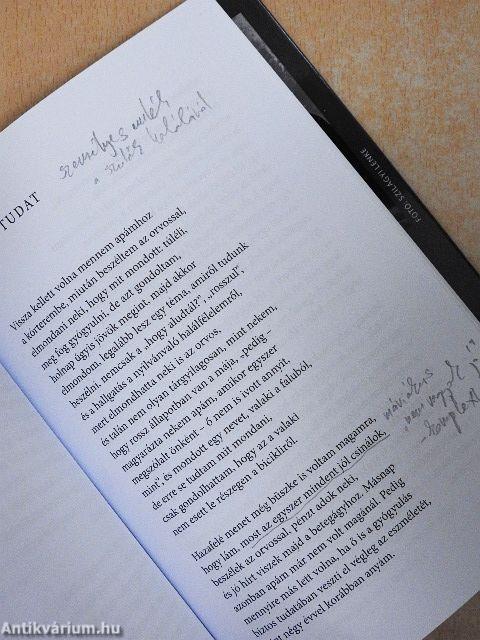 személyes emlék,
a szülők halálával
TUDAT
Vissza kellett volna mennem apámhoz
a kórterembe, miután beszéltem az orvossal,
elmondani neki, hogy mit mondott: túléli,
meg fog gyógyulni, de azt gondoltam,
holnap úgyis jövök megint, majd akkor
elmondom, legalább lesz egy téma, amiről tudunk
beszélni, nemcsak a „hogy aludtál?", „rosszul",
és a hallgatás a nyilvánvaló halálfélelemről,
mert elmondhatta neki is az orvos,
és talán nem olyan tárgyilagosan, mint nekem,
hogy rossz állapotban van a mája, „pedig –
magyarázta nekem apám, amikor egyszer
megszólalt önként – ő nem is ivott annyit,
mint", és mondott egy nevet, valaki a faluból,
de erre se tudtam mit mondani,
csak gondolhattam, hogy az a valaki
nem esett le részegen a bicikliről.
Hazafelé menet még büszke is voltam magamra,
hogy lám, most az egyszer mindent jól csinálok,
beszélek az orvossal, pénzt adok neki,
és jó hírt viszek majd a betegágyhoz. Másnap
azonban apám már nem volt magánál. Pedig
mennyire más lett volna, ha ő is a gyógyulás
biztos tudatában veszti el végleg az eszméletét,
négy évvel korábban anyám.
FOTÓ SZILÁGYI LENKE
Antikvárium.hu